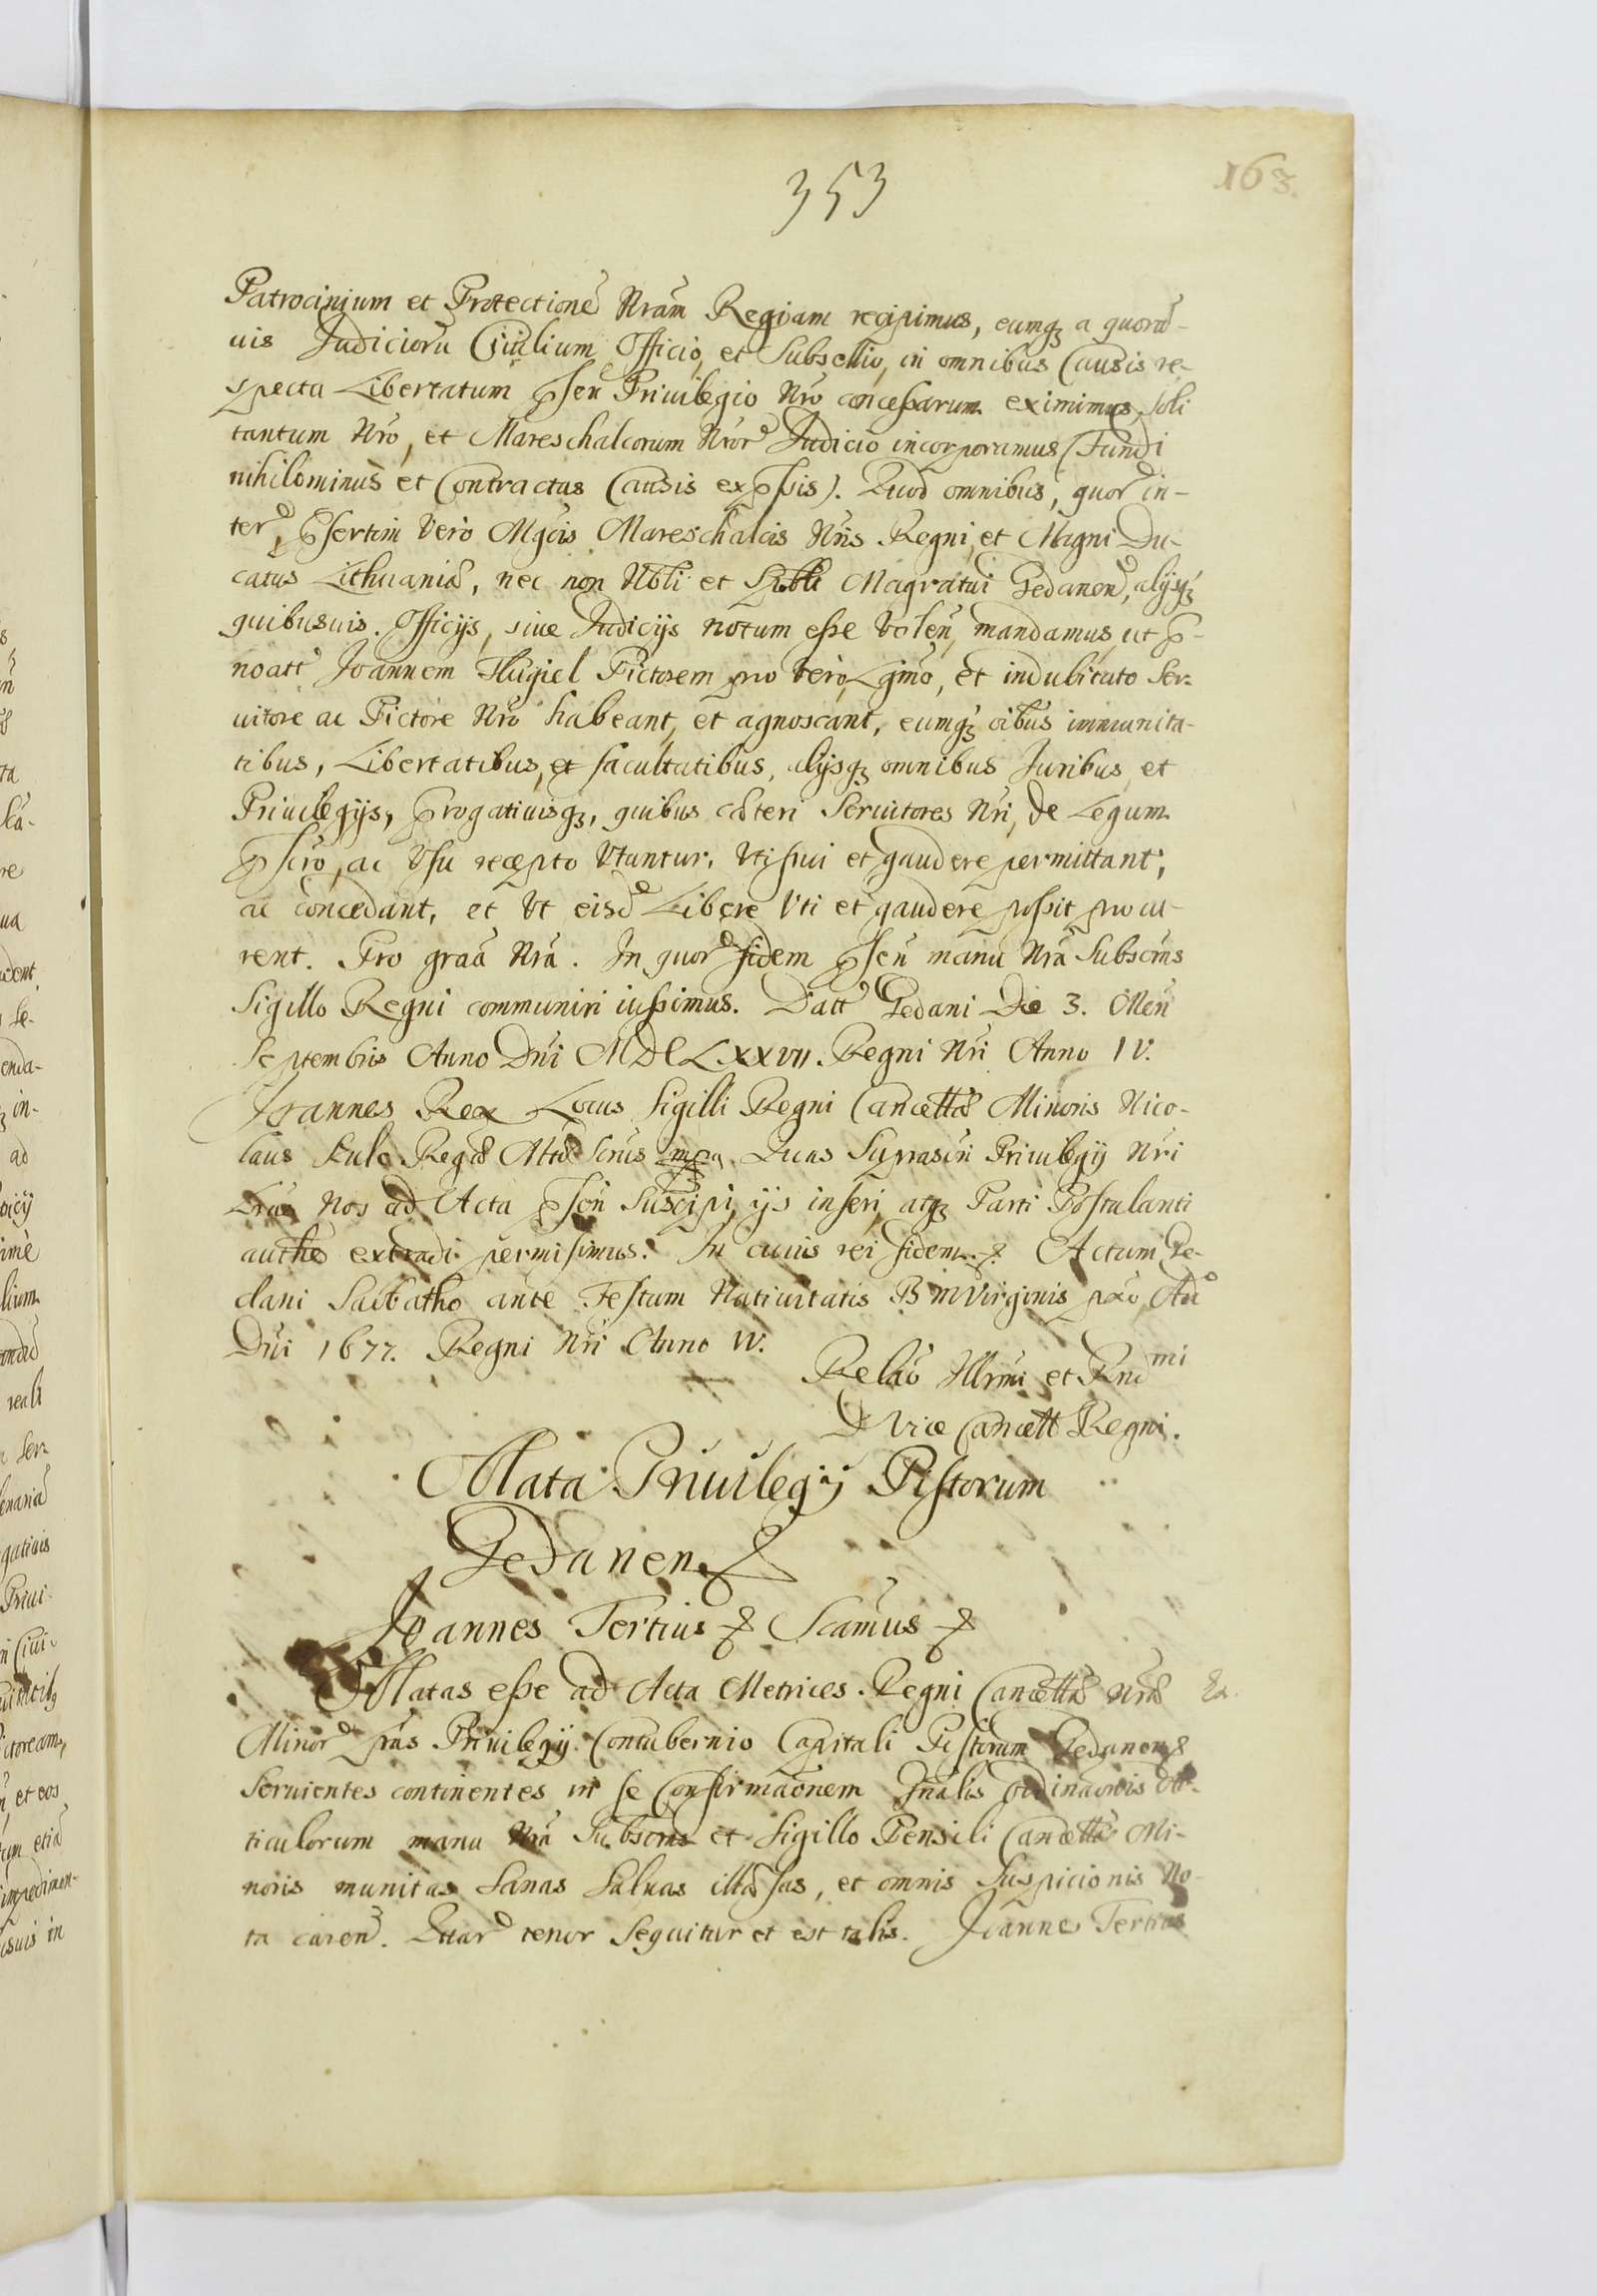 353
163.
Patrocinium et Protectionē Nrām Regiam recipimus, eumq₃ a quorū-
uis Judiciorū Ciuilium Officio, et Subsellio, in omnibus Causis re-
specta Libertatum p̄sen Priuilegio Nro concessarum eximimus, soli
tantum Nro, et Mareschalcorum Nror Judicio incorporamus (Fundi
nihilominus et Contractus Causis exp̄ssis). Quod omnibus, quor in-
ter, p̄sertim vero Mgcis Mareschalcis Nris Regni, et Magni Du-
catus Lithuaniæ, nec non Nbli et Spbli Magratui Gedanen, alysq₃
quibusuis Officijs, siue Judicijs notum esse Volen, mandamus, ut p̄-
noatt Joannem Flugiel Pictorem pro vero, Lgmo, et indubitato Ser-
uitore ac Pictore Nro habeant, et agnoscant, eumq₃ oibus immunita-
tibus, Libertatibus, et facultatibus, alysq₃ omnibus Juribus, et
Priuilegijs, p̄rogatiuisq₃, quibus cæteri Seruitores Nri, de Legum
p̄scro, ac Vsu recepto Vtuntur, Vti frui et gaudere permittant,
ac concedant, et Vt eisd Libere Vti et gaudere possit procu-
rent. Pro graa Nra. In quor fidem p̄sen manu Nra Subscras
Sigillo Regni communiri iussimus. Datt Gedani Die 3. Men
Septembris Anno Dni MDCLXXVII. Regni Nri Anno IV.
Joannes Rex Locus Sigilli Regni Cancettæ Minoris Nico-
laus Kulo Regæ Mttæ Scrius mpa. Quas Suprascri Priuilegij Nri
Lras Nos ad Acta p̄sen Suscipi, ijs inseri, atq₃ Parti Postulanti
authē extradi permisimus. In cuius rei fidem. Actum Ge-
dani Sabbatho ante Festum Natiuitatis B M Virginis pxo, Ao
Dni 1677. Regni Nri Anno IV.
Relāo Illrmi et Rnd mi
D Vice Cancett Regni.
Oblata Priuilegij Pistorum
Gedanen
Joannes Tertius Scāmus
Oblatas esse ad Acta Metrices Regni Cancettæ Nræ
Minor pras Priuilegij Contubernio Capitali Pistorum Gedanen
Seruientes continentes in se Confirmaonem Gnalis ordinaonis Ar-
ticulorum manu Nra Subscras et Sigillo Pensili Cancettæ Mi-
noris munitas Sanas Saluas illæsas, et omnis Suspicionis No-
ta caren. Quar tenor Sequitur et est talis. Joannes Tertius